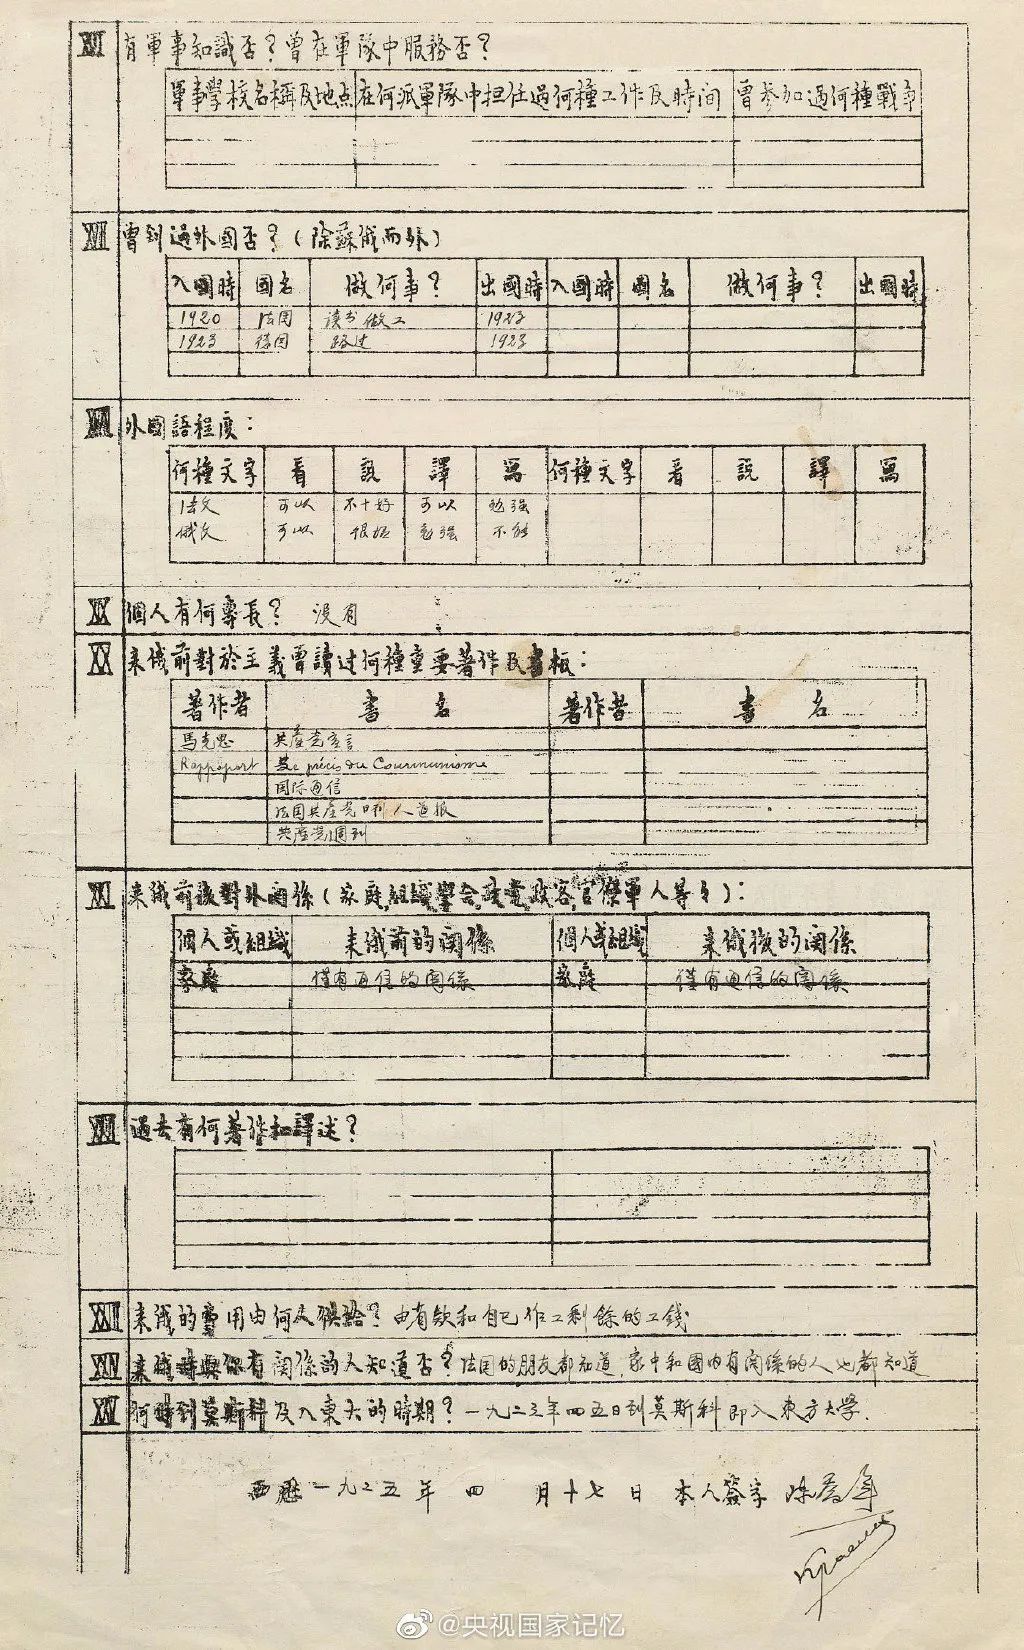 有軍事知識否？曾在軍隊中服務否？
軍事學校名稱及地点 在何派軍隊中担任過何種工作及時間 曾參加過何種戰爭
曾到過外國否？(除蘇俄而外)
入國時 國名 做何事？ 出國時 入國時 國名 做何事？ 出國時
1920 法国 读书做工 1923
1923 德国 路过 1923
外國語程度：
何種文字 看 說 譯 寫 何種文字 看 說 譯 寫
法文 可以 不十好 可以 勉强
俄文 可以 很坏 勉强 不能
XIX 個人有何專長？ 没有
XX 来俄前對於主義曾讀过何種重要著作及書板：
著作者 書名 著作者 書名
馬克思 共產党宣言
Rappoport précis du Communisme
国际通信
法国共產党 人道报
共產党週刊
XXI 来俄前後對外関係(家庭,組織,學会,政黨,政客,官僚軍人等々)：
個人或組織 来俄前的関係 個人或組織 来俄後的関係
家庭 僅有通信的関係 家庭 僅有通信的関係
XXII 過去有何著作和譯述？
XXIII 来俄的費用由何人供給？ 由有欵和自己作工剩餘的工錢
XXIV 来俄時與你有関係的人知道否？ 法国的朋友都知道,家中和國内有関係的人也都知道
XXV 何時到莫斯科及入東大的時期？ 一九二三年四五日到莫斯科即入東方大學.
西歷一九二五年四月十七日 本人簽字 陈喬年
@央视国家记忆